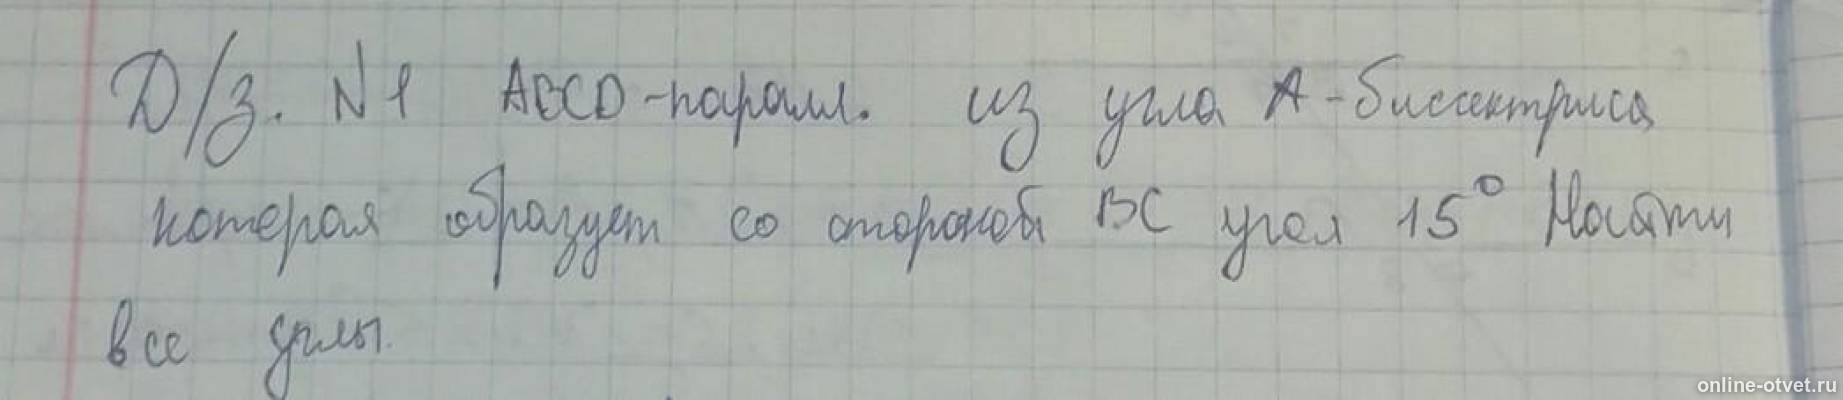 Д/з. №1 ABCD-парал. из угла А-биссектриса
которая образует со стороной BC угол 15° Найти
все углы.
online-otvet.ru